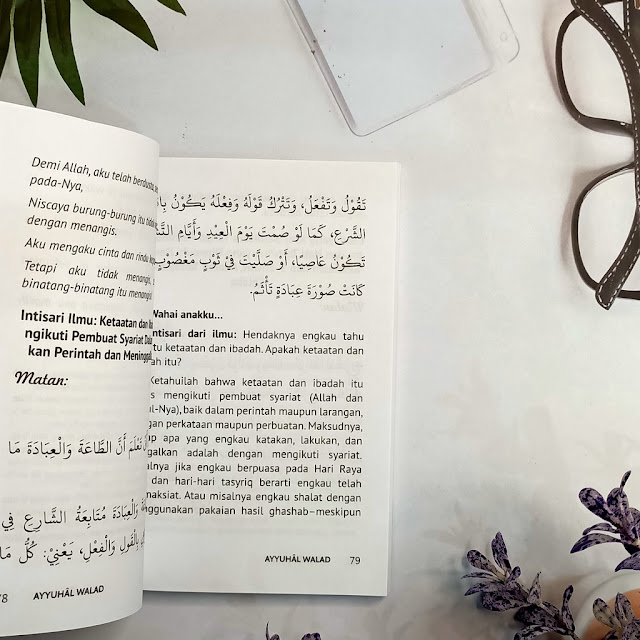 Demi Allah, aku telah berdusta
pada-Nya,
Niscaya burung-burung itu
dengan menangis.
Aku mengaku cinta dan rindu
Tetapi aku tidak menangis,
binatang-binatang itu menangis
Intisari Ilmu: Ketaatan dan
ngikuti Pembuat Syariat
kan Perintah dan
Matan:
نَعْلَمَ أَنَّ الطَّاعَةَ وَالْعِبَادَةَ مَا
وَالْعِبَادَةَ مُتَابَعَةُ الشَّارِعِ فِي
بِالْقَوْلِ وَالْفِعْلِ، يَعْنِيْ: كُلُّ مَا
78 AYYUHÂL WALAD
تَقُوْلُ وَتَفْعَلُ، وَتَتْرُكُ قَوْلَهُ وَفِعْلَهُ يَكُوْنُ
الشَّرْعِ، كَمَا لَوْ صُمْتَ يَوْمَ الْعِيْدِ وَأَيَّامَ
تَكُوْنُ عَاصِيًا، أَوْ صَلَّيْتَ فِيْ ثَوْبٍ مَغْصُوْبٍ
كَانَتْ صُوْرَةَ عِبَادَةٍ تَأْثَمُ.
Wahai anakku...
Intisari dari ilmu: Hendaknya engkau tahu
itu ketaatan dan ibadah. Apakah ketaatan dan
itu?
Ketahuilah bahwa ketaatan dan ibadah itu
mengikuti pembuat syariat (Allah dan
ul-Nya), baik dalam perintah maupun larangan,
gan perkataan maupun perbuatan. Maksudnya,
ap apa yang engkau katakan, lakukan, dan
galkan adalah dengan mengikuti syariat.
alnya jika engkau berpuasa pada Hari Raya
dan hari-hari tasyriq berarti engkau telah
maksiat. Atau misalnya engkau shalat dengan
ggunakan pakaian hasil ghashab–meskipun
AYYUHÂL WALAD 79